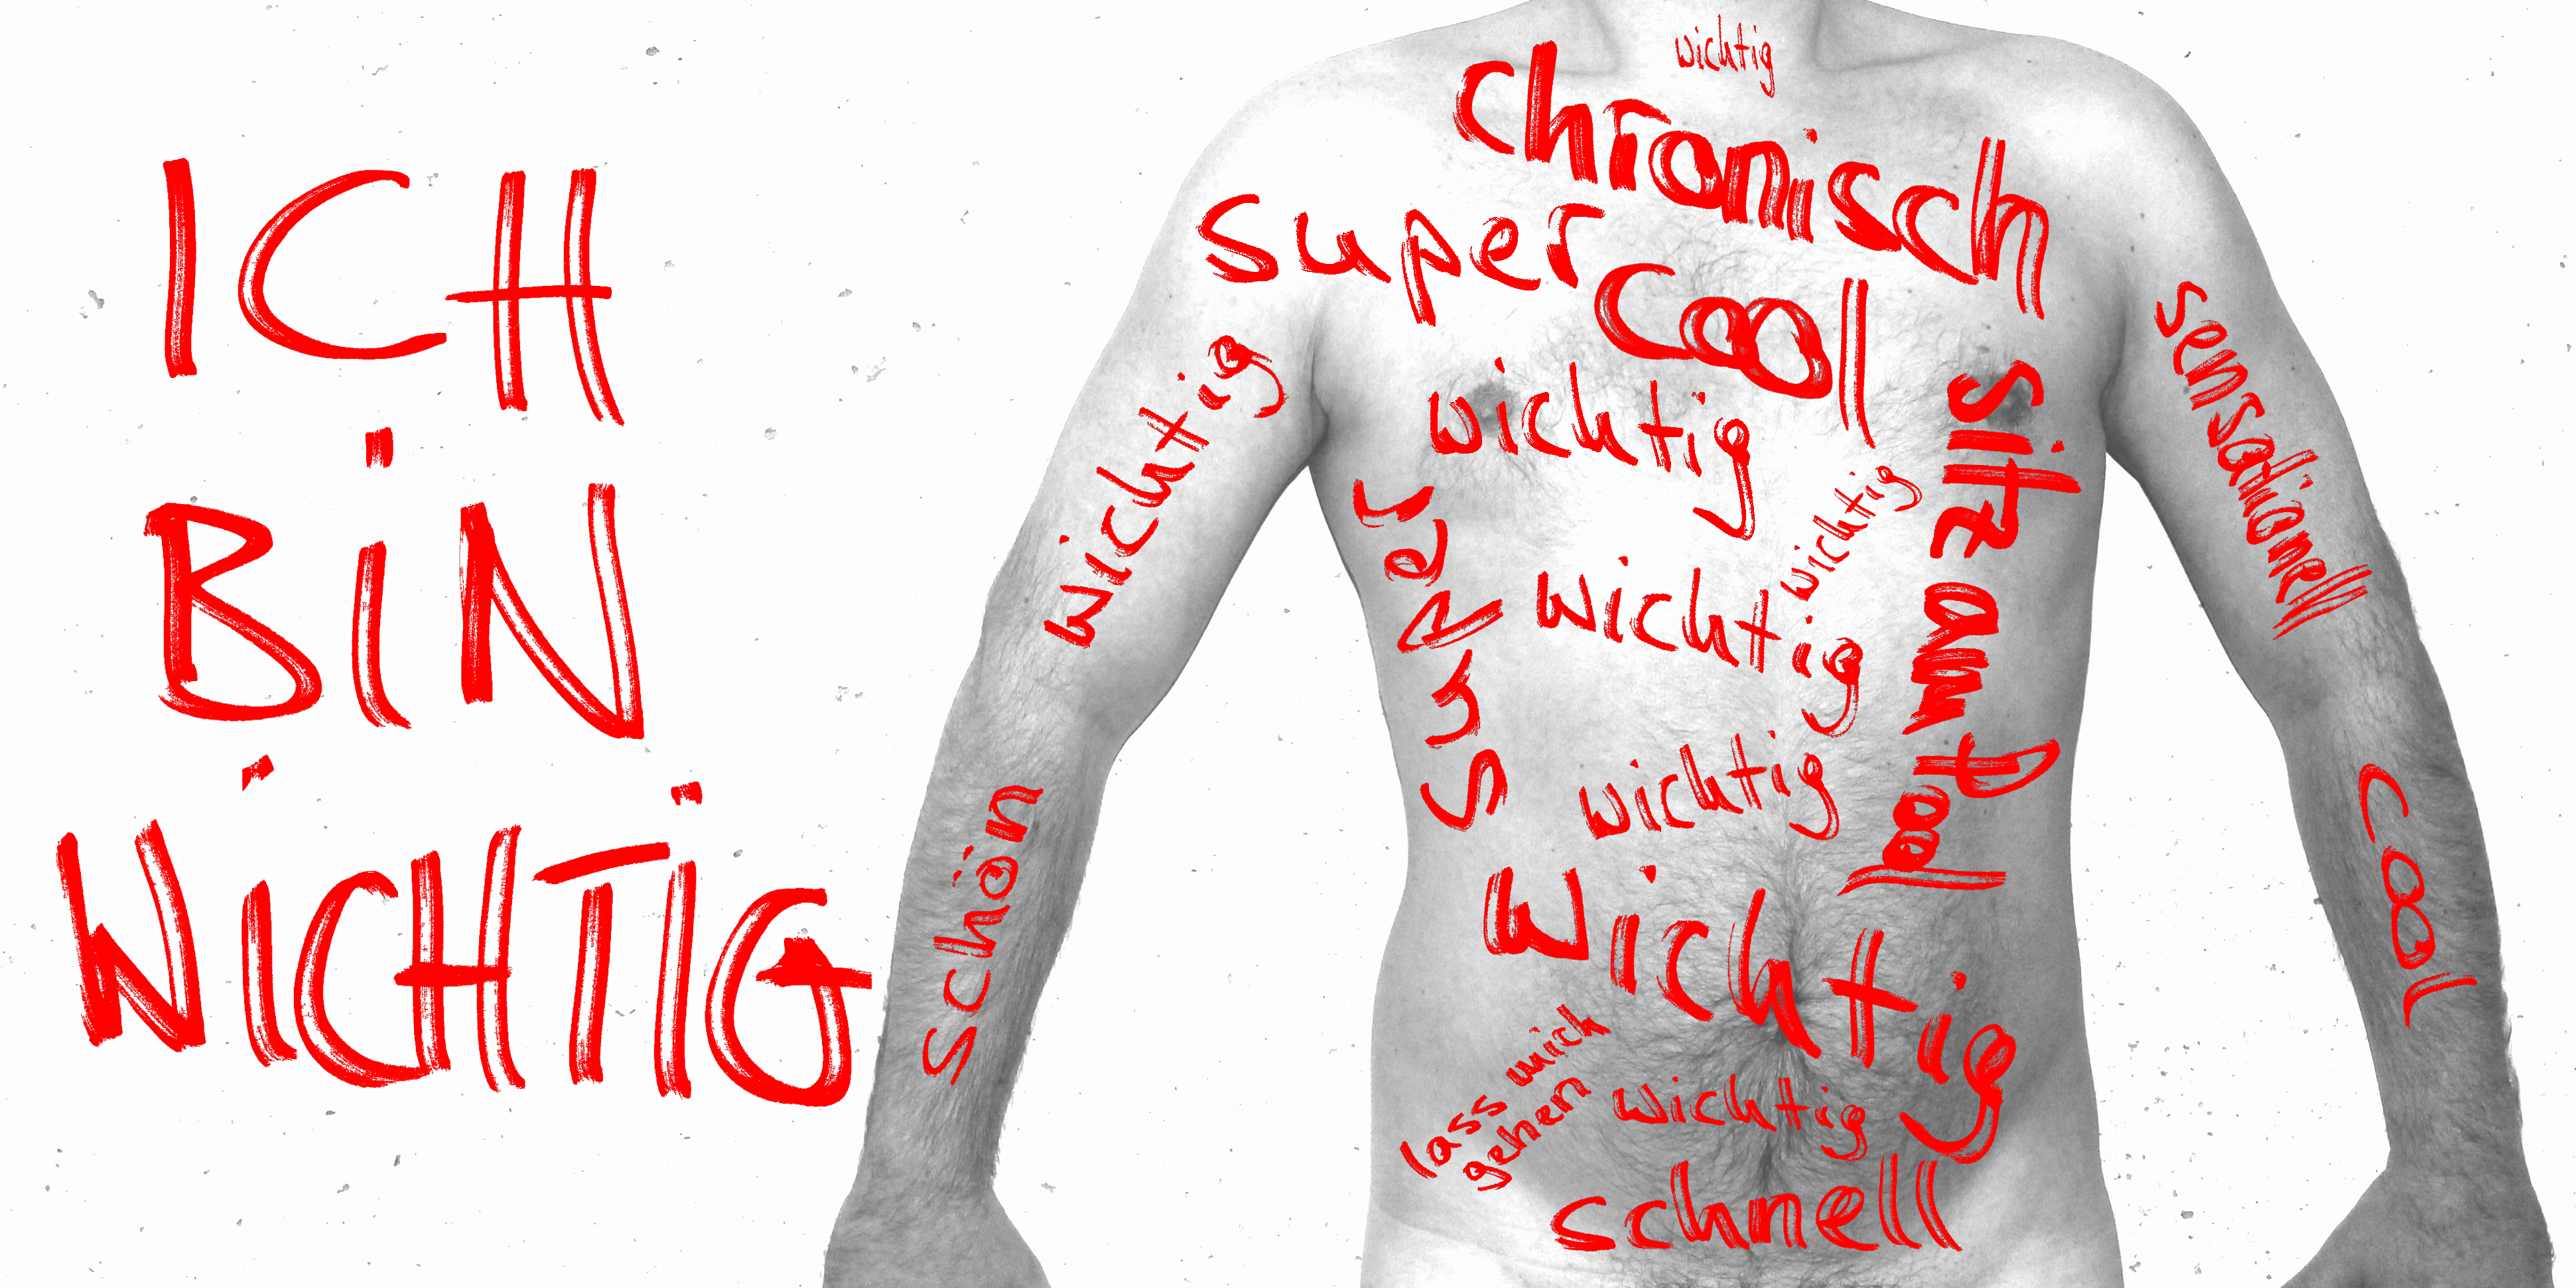 ICH
BiN
WiCHTIG
wichtig
chronisch
super
cool
wichtig
sensationell
wichtig
super
wichtig
wichtig
sitz auf
cool
wichtig
schön
cool
wichtig
lass mich
gehen
wichtig
schnell